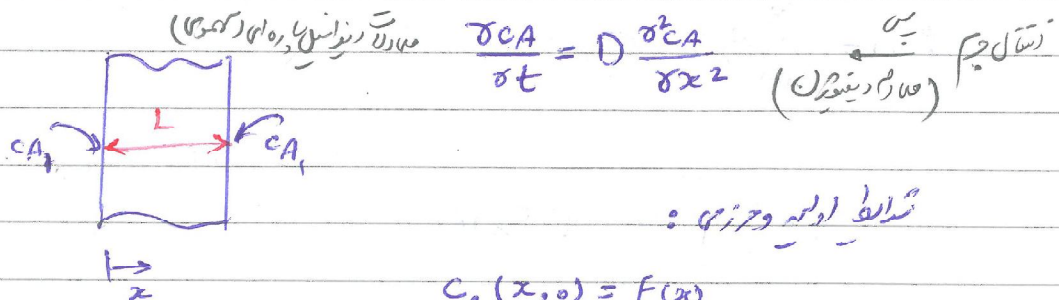 انتقال جرم پس (معادله دیفیوژن) γCA/γt = D γ²CA/γx² معادلات دیفرانسیل پاره‌ای (سهموی)
L
CA₁ CA₁
شرایط اولیه و مرزی :
x
C₀ (x,0) = F(x)